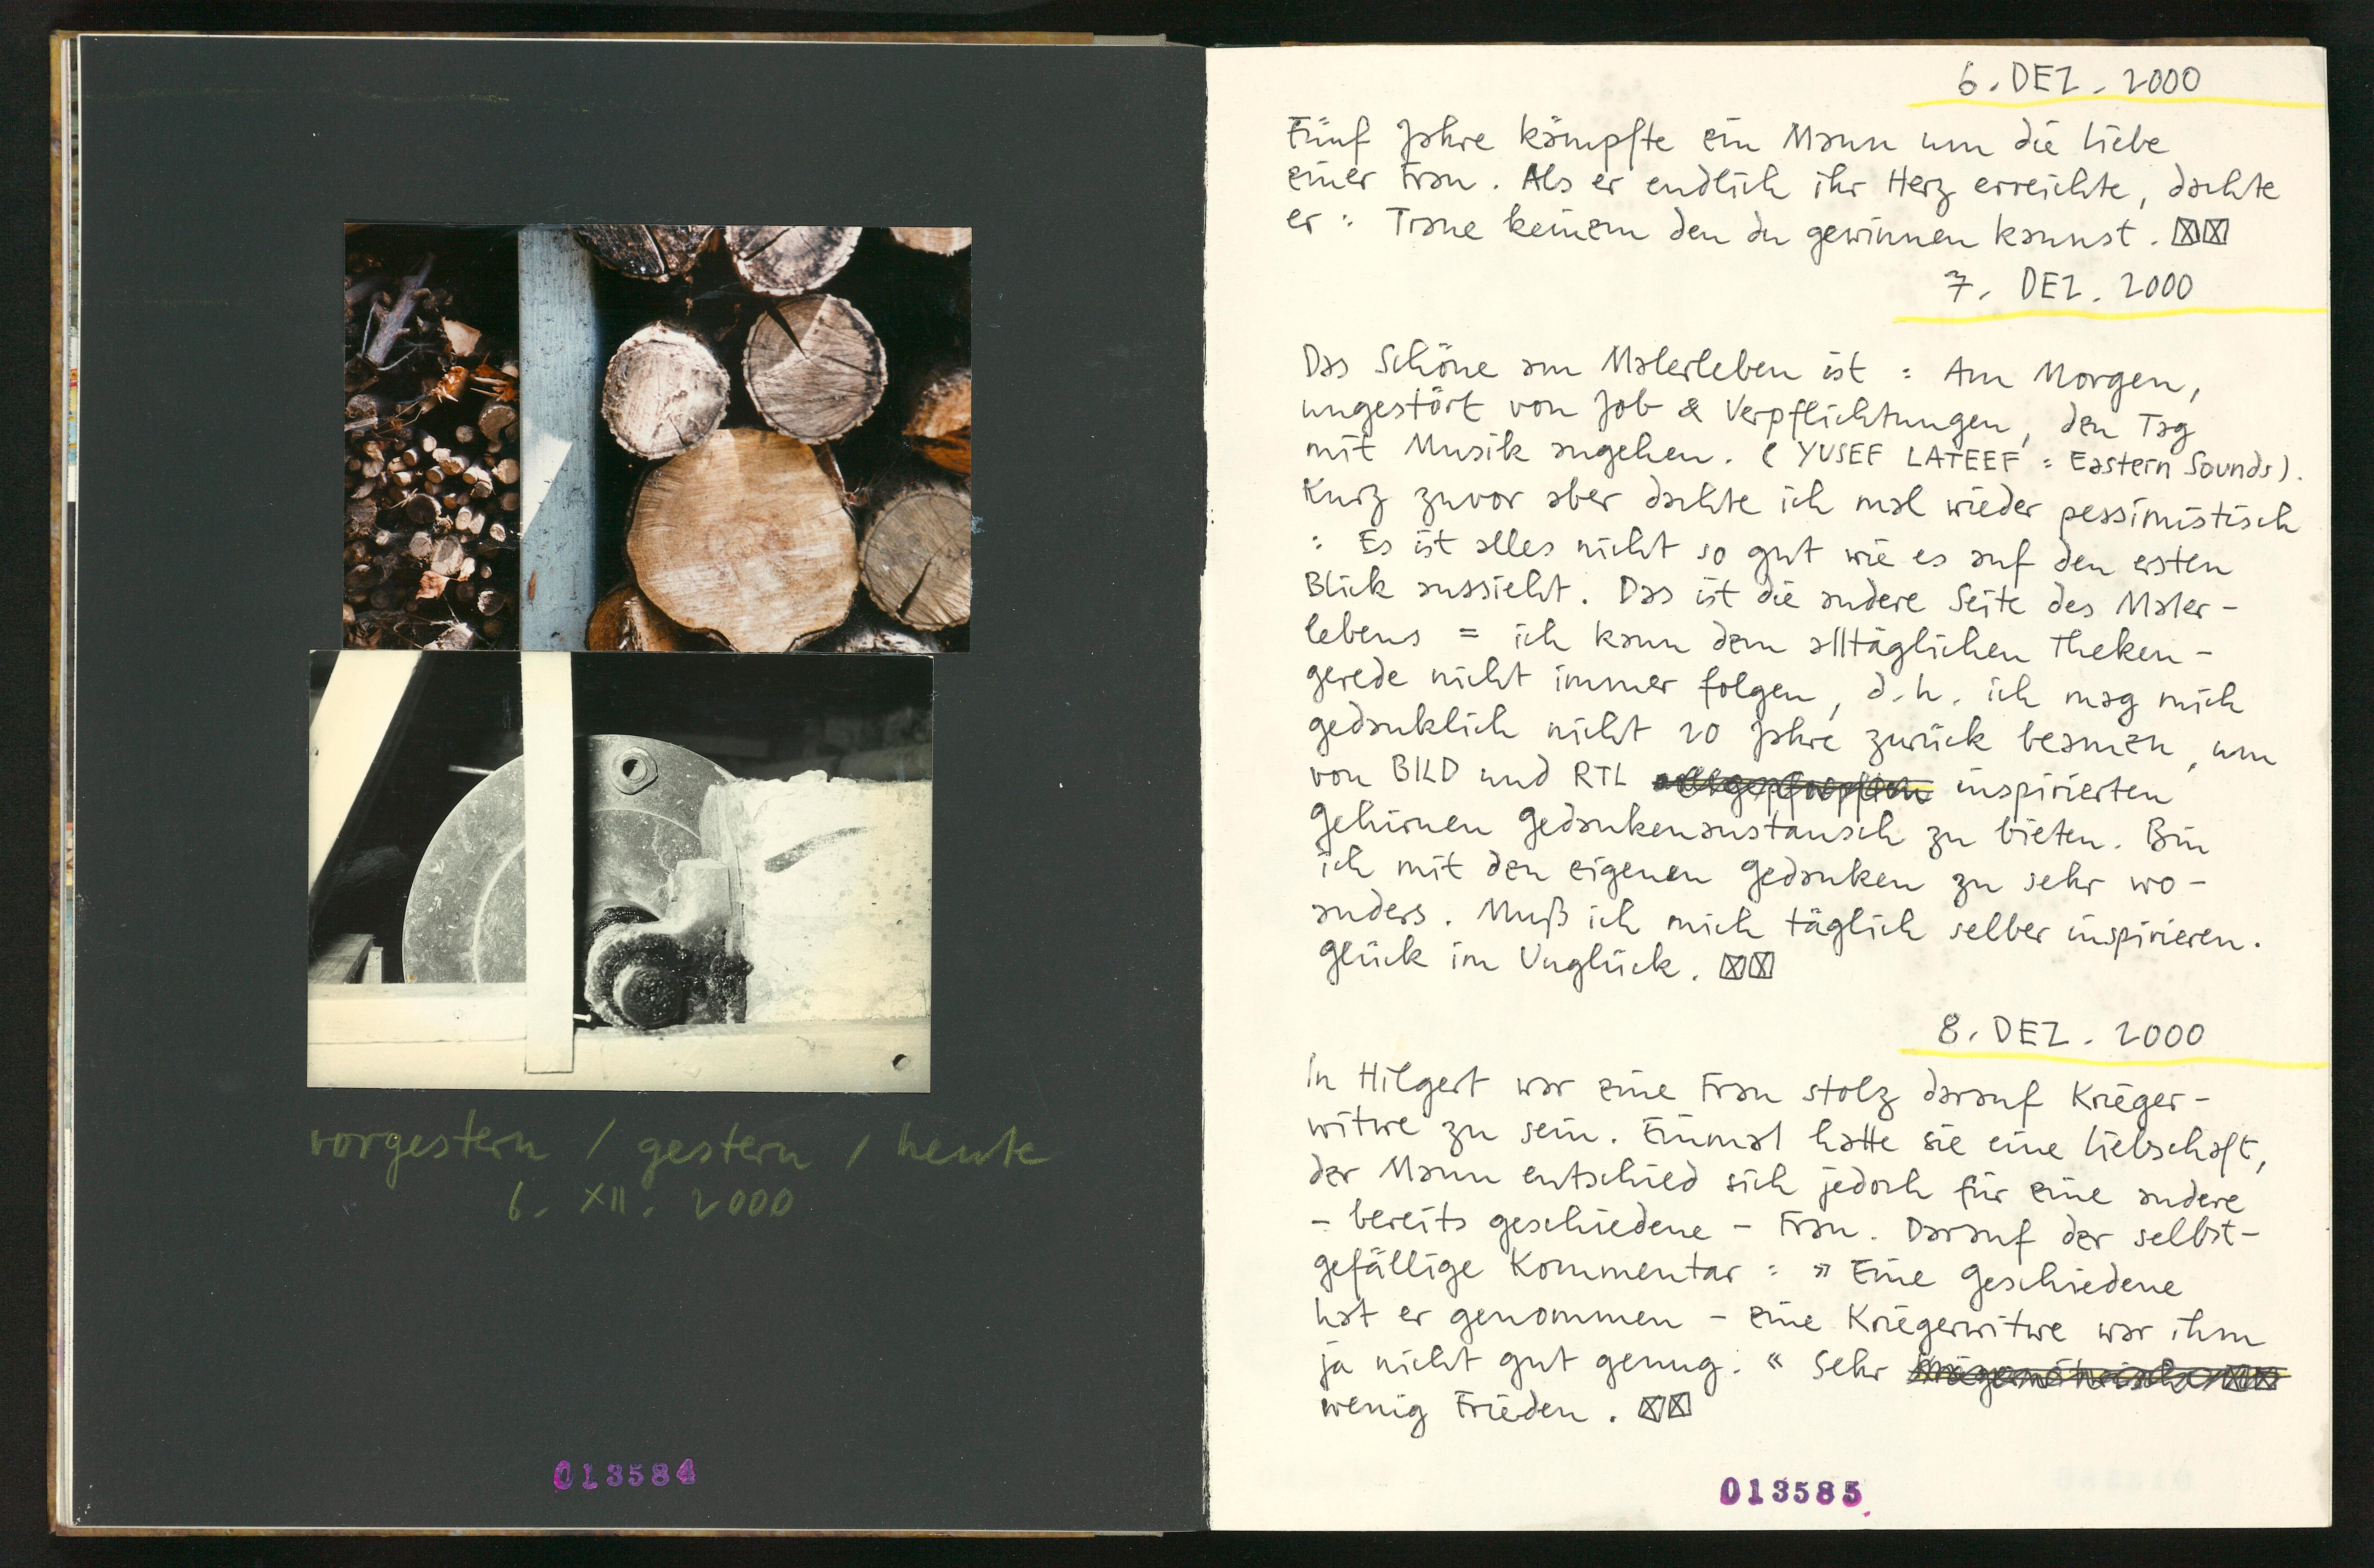 vorgestern / gestern / heute
6. XII. 2000
013584
6. DEZ. 2000
Fünf Jahre kämpfte ein Mann um die Liebe
einer Frau. Als er endlich ihr Herz erreichte, dachte
er : Traue keinem den du gewinnen kannst.
7. DEZ. 2000
Das Schöne am Malerleben ist : Am Morgen,
ungestört von Job & Verpflichtungen, den Tag
mit Musik angehen. ( YUSEF LATEEF : Eastern Sounds).
Kurz zuvor aber dachte ich mal wieder pessimistisch
: Es ist alles nicht so gut wie es auf den ersten
Blick aussieht. Das ist die andere Seite des Maler-
lebens = ich kann dem alltäglichen Theken-
gerede nicht immer folgen, d.h. ich mag mich
gedanklich nicht 20 Jahre zurück beamen, um
von BILD und RTL inspirierten
Gehirnen Gedankenaustausch zu bieten. Bin
ich mit den eigenen Gedanken zu sehr wo-
anders. Muß ich mich täglich selber inspirieren.
Glück im Unglück.
8. DEZ. 2000
In Hilgert war eine Frau stolz darauf Krieger-
witwe zu sein. Einmal hatte sie eine Liebschaft,
der Mann entschied sich jedoch für eine andere
- bereits geschiedene - Frau. Darauf der selbst-
gefällige Kommentar : » Eine Geschiedene
hat er genommen - eine Kriegerwitwe war ihm
ja nicht gut genug. « Sehr
wenig Frieden.
013585